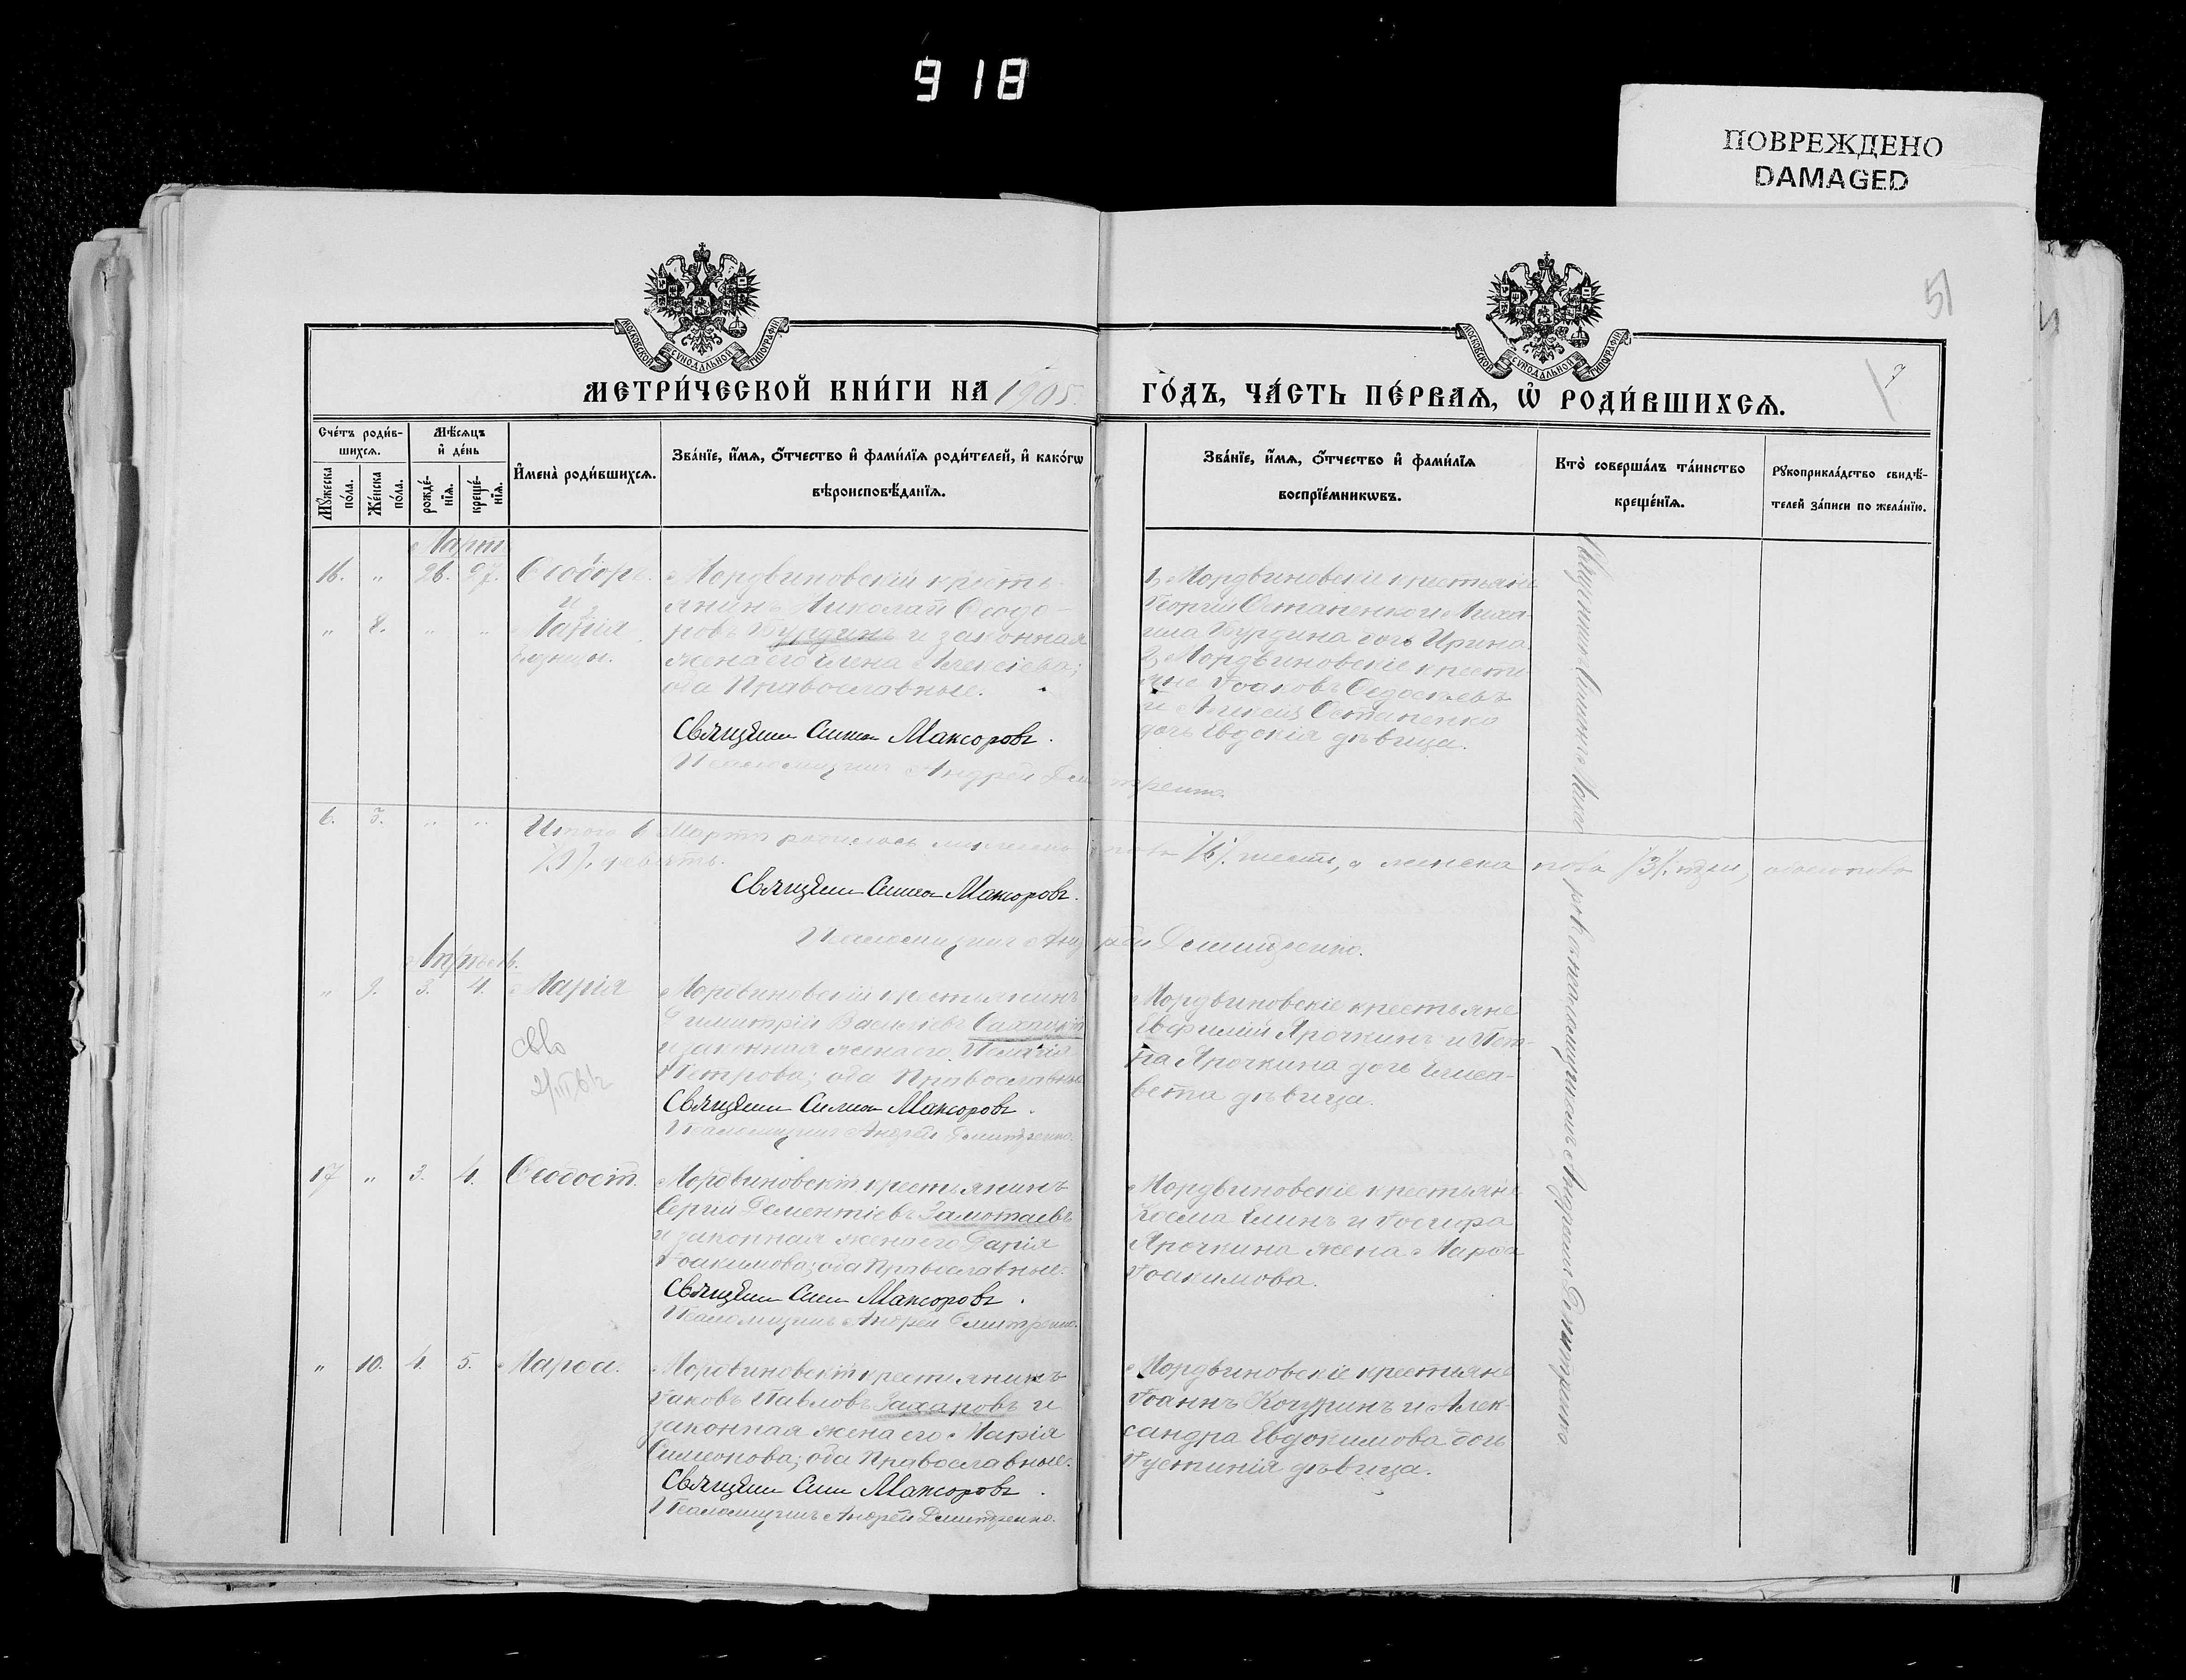 918
ПОВРЕЖДЕНО
DAMAGED
51
7
МОСКОВСКОЙ СѴНОДАЛЬНОЙ ТИПОГРАФІИ
МОСКОВСКОЙ СѴНОДАЛЬНОЙ ТИПОГРАФІИ
МЕТРИ́ЧЕСКОЙ КНИ́ГИ НА 1905 ГО́ДЪ, ЧА́СТЬ ПЕ́РВАѦ, Ѡ҆ РОДИ́ВШИХСѦ.
Сче́тъ роди́в-
шихсѧ.
Мꙋ́жеска
по́ла.
Же́нска
по́ла.
Мѣ́сѧцъ
и҆ де́нь
рожде́-
нїѧ.
креще́-
нїѧ.
И҆мена̀ роди́вшихсѧ.
Зва́нїе, и҆́мѧ, ѻ҆́тчество и҆ фами́лїѧ роди́телей, и҆ како́гѡ
вѣроисповѣ́данїѧ.
Зва́нїе, и҆́мѧ, ѻ҆́тчество и҆ фами́лїѧ
воспрїе́мникѡвъ.
Кто̀ соверша́лъ та́инство
креще́нїѧ.
Рꙋкоприкла́дство свидѣ́-
телей за́писи по жела́нїю.
Мартъ
16. " 26. 27. Ѳеодоръ
и
" 8. " " Марія
близнецы.
Мордвиновскій кресть-
янинъ Николай Ѳеодо-
ровъ Бурдинъ и законная
жена его Елена Алексіева;
оба Православные.
Священникъ Симеон Максоровъ.
Псаломщикъ Андрей Дмитренко.
1, Мордвиновскіе крестьяне
Георгій Остапенко и Миха-
ила Бурдина дочь Ирина.
2, Мордвиновскіе крестья-
яне Іоаковъ Ѳедосѣевъ
и Алексія Остапенко
дочь Евдокія дѣвица.
6. 3. " "
Итого въ Мартѣ родилось мужеска пола /6/. шесть, а женска пола /3/. три, обоего пола
/9/. девять.
Священникъ Симеон Максоровъ.
Псаломщикъ Андрей Дмитренко.
Апрѣль.
" 9. 3. 4. Марія
Мордвиновскій крестьянинъ
Димитрій Василіевъ
и законная жена его Пелагія
Петрова; оба Православные
Священникъ Симеон Максоровъ.
Псаломщикъ Андрей Дмитренко.
Мордвиновскіе крестьяне
Евфимій Ярочкинъ и Пет-
ра Ярочкина дочь Елиса-
вета дѣвица.
17 " 3. 4. Ѳеодосій.
Мордвиновскій крестьянинъ
Сергій Дементіевъ Замотаевъ
и законная жена его Дарія
Іоакимова; оба Православные.
Священникъ Симеон Максоровъ.
Псаломщикъ Андрей Дмитренко.
Мордвиновскіе крестьяне
Косма Елинъ и Іосифа
Ярочкина жена Марѳа
Іоакимова.
" 10. 4. 5. Марѳа.
Мордвиновскій крестьянинъ
Іаковъ Павловъ Захаровъ и
законная жена его Марія
Симеонова; оба Православные.
Священникъ Симеон Максоровъ.
Псаломщикъ Андрей Дмитренко.
Мордвиновскіе крестьяне
Іоаннъ Кочуринъ и Алек-
сандра Евдокимова дочь
Іустинія дѣвица.
Священникъ Симеонъ Максоровъ съ псаломщикомъ Андреемъ Дмитренко